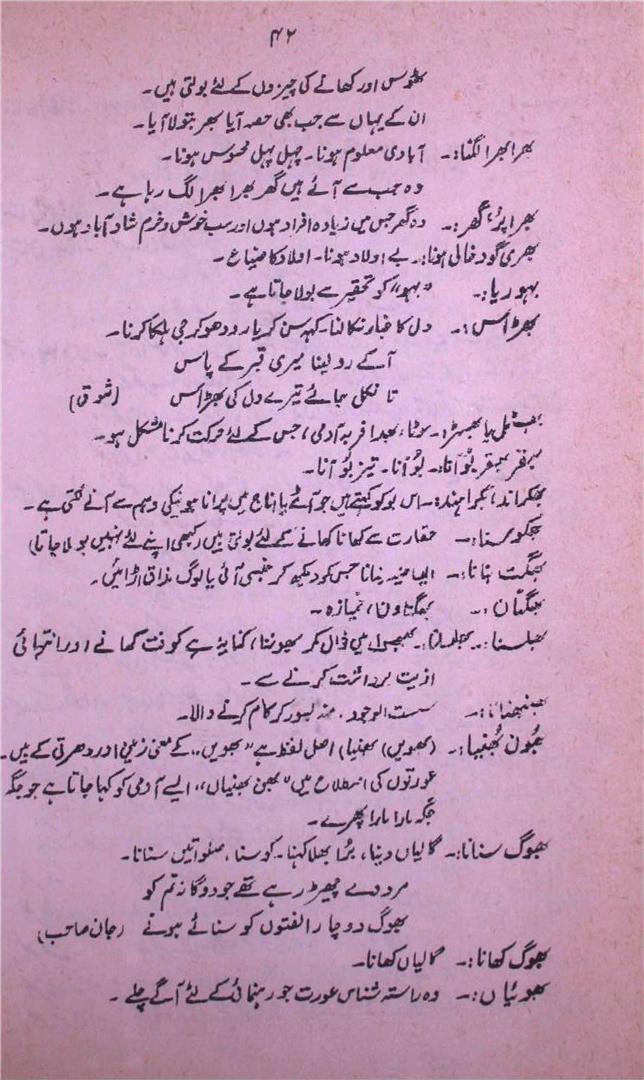 ۴۲
ٹھوس اور کھانے کی چیزوں کے لئے بولتی ہیں۔
ان کے یہاں سے جب بھی حصہ آیا بھر بتولا آیا۔
بھرا بھرا لگنا:۔ آبادی معلوم ہونا۔ چہل پہل محسوس ہونا۔
وہ جب سے آئے ہیں گھر بھرا بھرا لگ رہا ہے۔
بھرا پُرا گھر:۔ وہ گھر جس میں زیادہ افراد ہوں اور سب خوش و خرم شاد و آباد ہوں۔
بھری گود خالی ہونا:۔ بے اولاد ہونا۔ اولاد کا ضیاع۔
بہوریا:۔ "بہو" کو تحقیر سے بولا جاتا ہے۔
بھڑاس:۔ دل کا غبار نکالنا۔ کہہ سن کر یا رو دھو کر جی ہلکا کرنا۔
آکے رو لینا میری قبر کے پاس
تا نکل جائے تیرے دل کی بھڑاس (شوق)
موٹا، بھدا فربہ آدمی، جس کے لئے حرکت کرنا مشکل ہو۔
بھقر بھقر بُو آنا:۔ بُو آنا۔ تیز بُو آنا۔
بھکراند، بھکراہندہ:۔ اس بو کو کہتے ہیں جو آٹے یا اناج میں پرانا ہونیکی وجہ سے آنے لگتی ہے۔
بھکوسنا:۔ حقارت سے کھانا کھانے کے لئے بولتی ہیں (کبھی اپنے لئے نہیں بولا جاتا)
بھگت بنانا:۔ ایسا حلیہ بنانا جس کو دیکھ کر ہنسی آئی یا لوگ مذاق اڑائیں۔
بھگتان:۔ بھگتاون، خمیازہ۔
بھلسنا:۔ بھلسانا:۔ بھوبل میں ڈال کر بھوننا، کنایۃً ہے کوفت کھانے اور انتہائی
اذیت برداشت کرنے سے۔
بھنبھنانا:۔ سست الوجود، منہ بسور کر کام کرنے والا۔
بھُون بھُنیا:۔ (بھویں) بھنیا) اصل لفظ ہے "بھویں"، کے معنی زمین اور دھرتی کے ہیں۔
عورتوں کی اصطلاح میں "بھین بھنیاں"، ایسے آدمی کو کہا جاتا ہے جو جگہ
جگہ مارا مارا پھرے۔
بھوگ سنانا:۔ گالیاں دینا، بُرا بھلا کہنا۔ کوسنا، صلواتیں سنانا۔
مردوے چھیڑ رہے تھے جو دوگانہ تم کو
بھوگ دو چار الفتوں کو سنائے ہوتے (جان صاحب)
بھوگ کھانا:۔ گالیاں کھانا۔
بھوئیاں:۔ وہ راستہ شناس عورت جو رہنمائی کے لئے آگے چلے۔